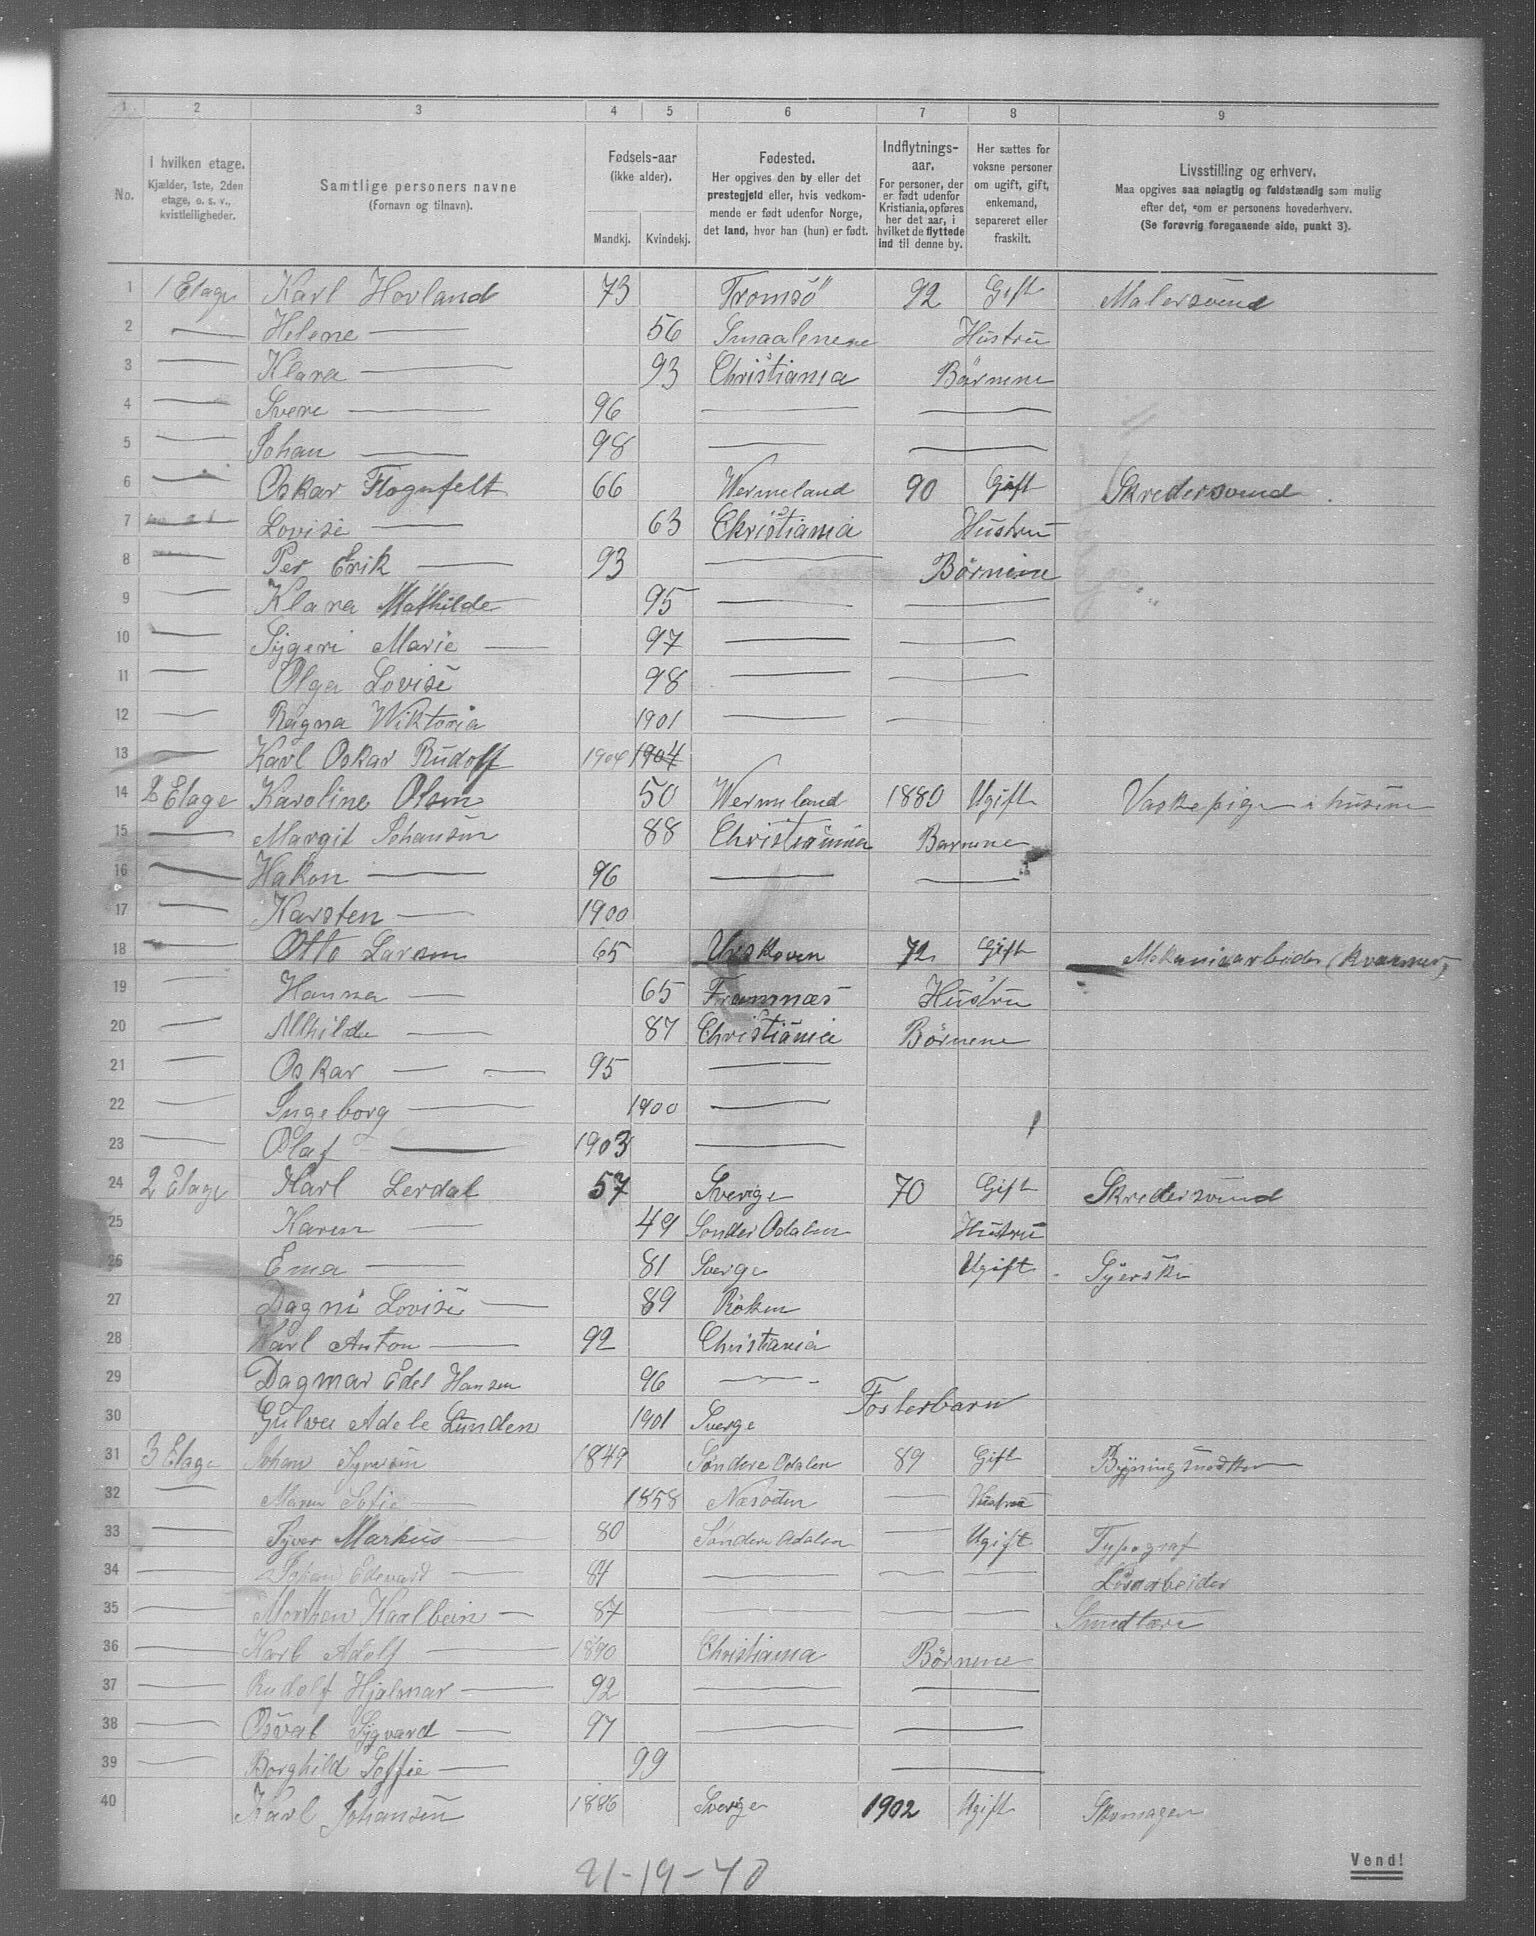 1 2 3 4 5 6 7 8 9
No.
I hvilken etage.
Kjælder, 1ste, 2den
etage, o. s. v.,
kvistleiligheder.
Samtlige personers navne
(Fornavn og tilnavn).
Fødsels-aar
(ikke alder).
Mandkj. Kvindekj.
Fødested.
Her opgives den by eller det
prestegjeld eller, hvis vedkom-
mende er født udenfor Norge,
det land, hvor han (hun) er født.
Indflytnings-
aar.
For personer, der
er født udenfor
Kristiania, opføres
her det aar, i
hvilket de flyttede
ind til denne by.
Her sættes for
voksne personer
om ugift, gift,
enkemand,
separeret eller
fraskilt.
Livsstilling og erhverv.
Maa opgives saa nøiagtig og fuldstændig som mulig
efter det, som er personens hovederhverv.
(Se forøvrig foregaaende side, punkt 3).
1 1 Etage Karl Hovland 73 Tromsö 92 Gift Malersvend
2 — Helene — 56 Smaalenene Hustru
3 — Klara — 93 Christiania Börnene
4 — Svere — 96 — —
5 — Johan — 98 — —
6 — Oskar Flognfelt 66 Wermeland 90 Gift Skredersvend
7 — Lovise — 63 Christiania Hustru
8 — Per Erik — 93 — Börnene
9 — Klara Mathilde 95 — —
10 — Sygeri Marie — 97 — —
11 — Olga Lovise 98 — —
12 — Ragna Wiktoria 1901 — —
13 — Karl Oskar Rudolf 1904 1904
14 2 Etage Karoline Olsen 50 Wermeland 1880 Ugift Vaskepige i husene
15 — Margit Johansen 88 Christiania Barnene
16 — Hakon — 96 — —
17 — Karsten — 1900
18 — Otto Larsen 65 Urskoven 72 Gift Mekanisarbeider (Kværner)
19 — Hanna — 65 Framnæs Hustru
20 — Mthilde — 87 Christiania Börnene
21 — Oskar — — 95 —
22 — Ingeborg — 1900 —
23 — Olaf — 1903 —
24 2 Etage Karl Lerdal 57 Sverige 70 Gift Skredersvend
25 Karen — 49 Sonder Odalen Hustru
26 Ema — 81 Sverge Ugift Syerske
27 Dagni Lovise — 89 Röken
28 Karl Anton — 92 Christiania
29 Dagmar Edel Hansen 96 — Fosterbarn
30 Gulva Adele Lunden 1901 Sverge
31 3 Etage Johan Syversen 1849 Söndere Odalen 89 Gift Bygningsnedker
32 — Maren Sofie — 1858 Næsodden — Hustru
33 — Syver Markus — 80 Söndere Odalen — Ugift Typograf
34 — Johan Edevard — 84 — — — Lösarbeider
35 — Morthen Karlbein — 87 — — — Smedlære
36 — Karl Adolf — 1890 Christiania Börnene
37 — Rudolf Hjalmar — 92 — —
38 — Osval Sygvard — 97 — —
39 — Borghild Soffie — 99 —
40 Karl Johansen 1886 Sverige 1902 Ugift Skomager
21-19-40
Vend!